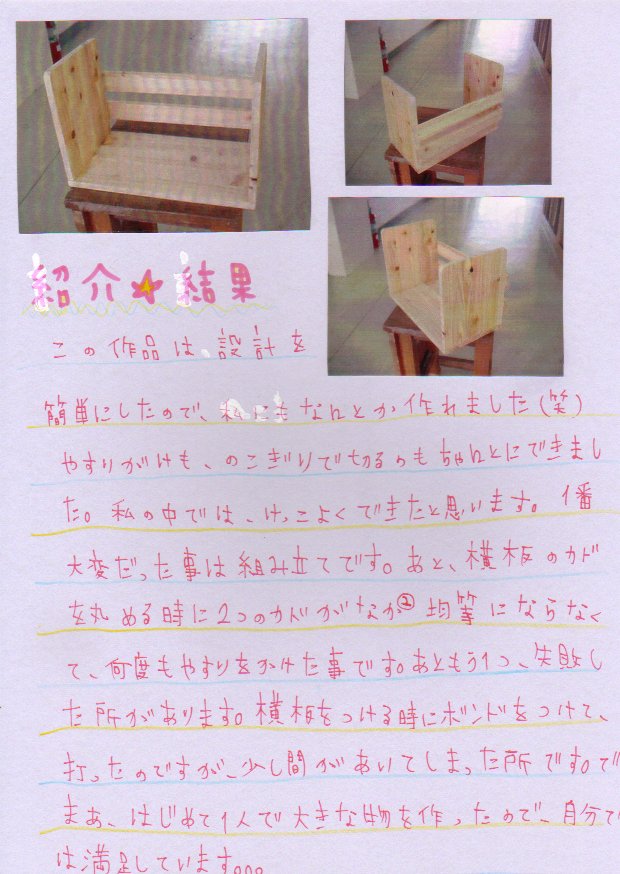 紹介★結果
この作品は、設計を
簡単にしたので、私にもなんとか作れました(笑)
やすりがけも、のこぎりで切るのもちゃんとにできまし
た。私の中では、けっこよくできたと思います。1番
大変だった事は組み立てです。あと、横板のカド
を丸める時に2つのカドがなかなか均等にならなく
て、何度もやすりをかけた事です。あともう1つ、失敗し
た所があります。横板をつける時にボンドをつけて、
打ったのですが、少し間があいてしまった所です。で
まぁ、はじめて1人で大きな物を作ったので、自分で
は満足しています。。。